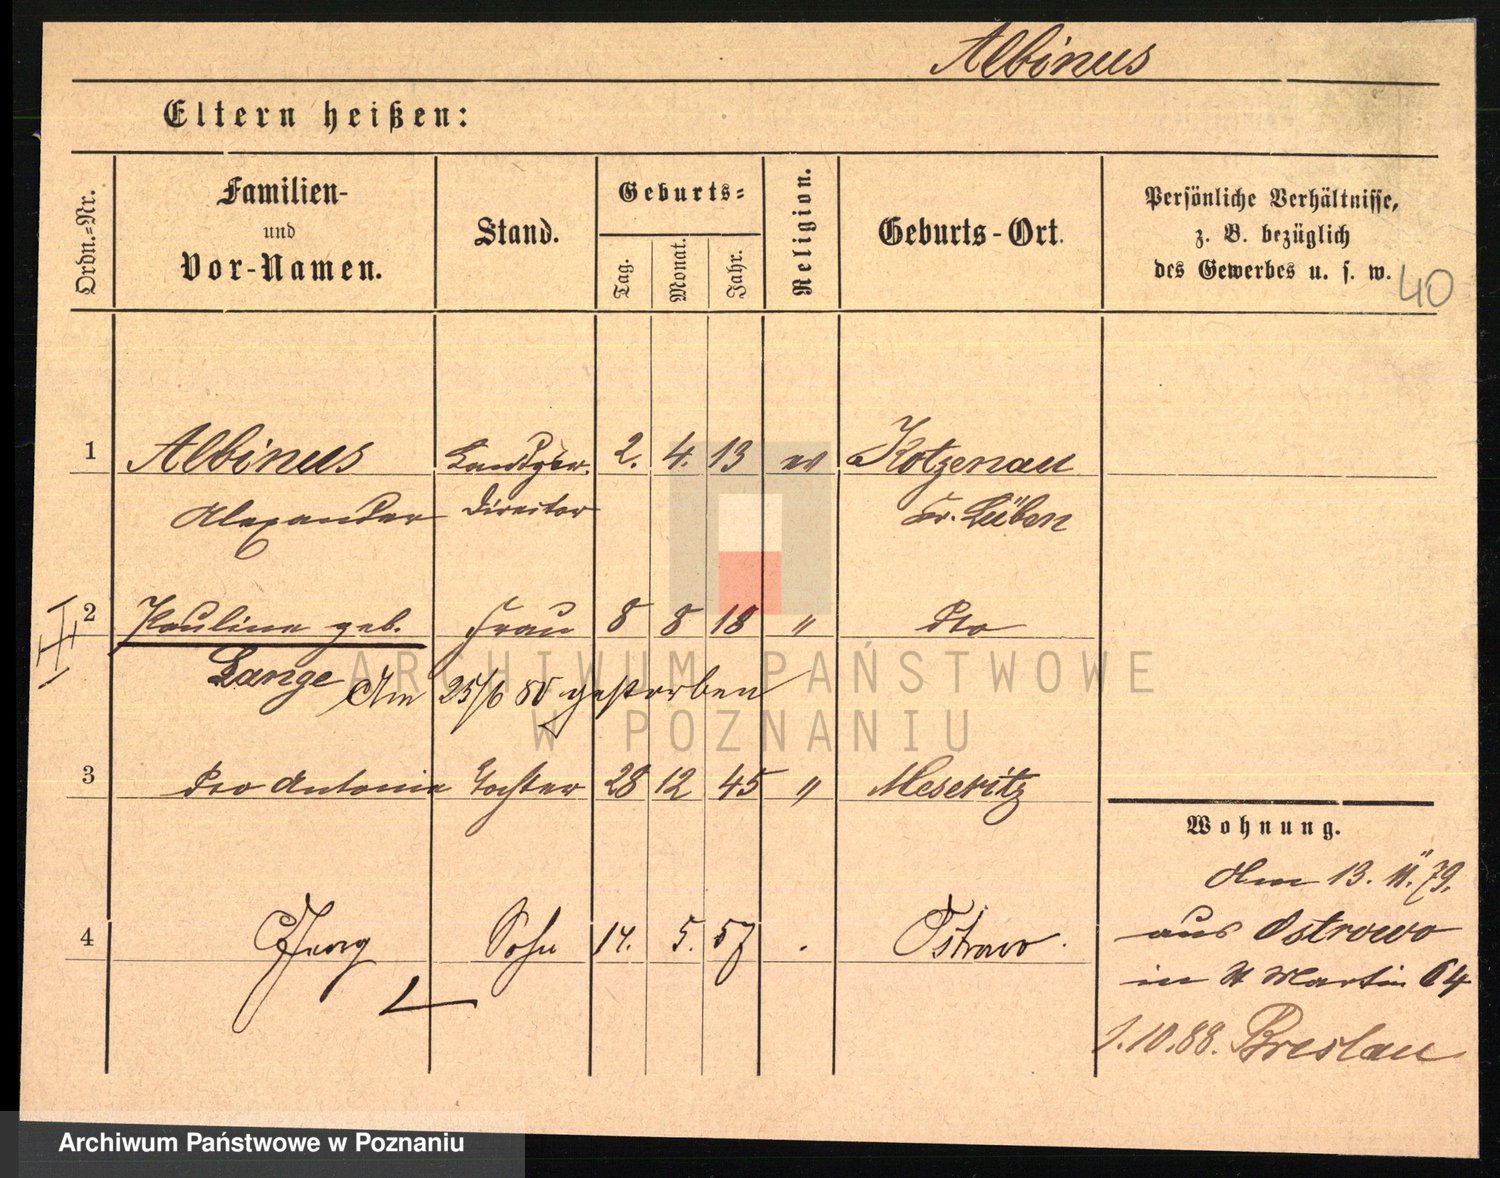 Albinus
Eltern heißen:
Ordn.-Nr.
Familien-
und
Vor-Namen.
Stand.
Geburts-
Tag.
Monat.
Jahr.
Religion.
Geburts-Ort.
Persönliche Verhältnisse,
z. B. bezüglich
des Gewerbes u. s. w.
40
1 Albinus Landger. 2. 4. 13 ev Kotzenau
Alexander Director Kr. Lüben
2 Pauline geb. Frau 8 8 18 " dto
Lange Am 25/6 80 gestorben
3 dto Antonie Tochter 28 12 45 " Meseritz
4 Georg Sohn 14. 5. 57 . Ostrowo.
Wohnung.
Am 13. 11. 79.
aus Ostrowo
in St Martin 64
1.10.88. Breslau
ARCHIWUM PAŃSTWOWE
W POZNANIU
Archiwum Państwowe w Poznaniu